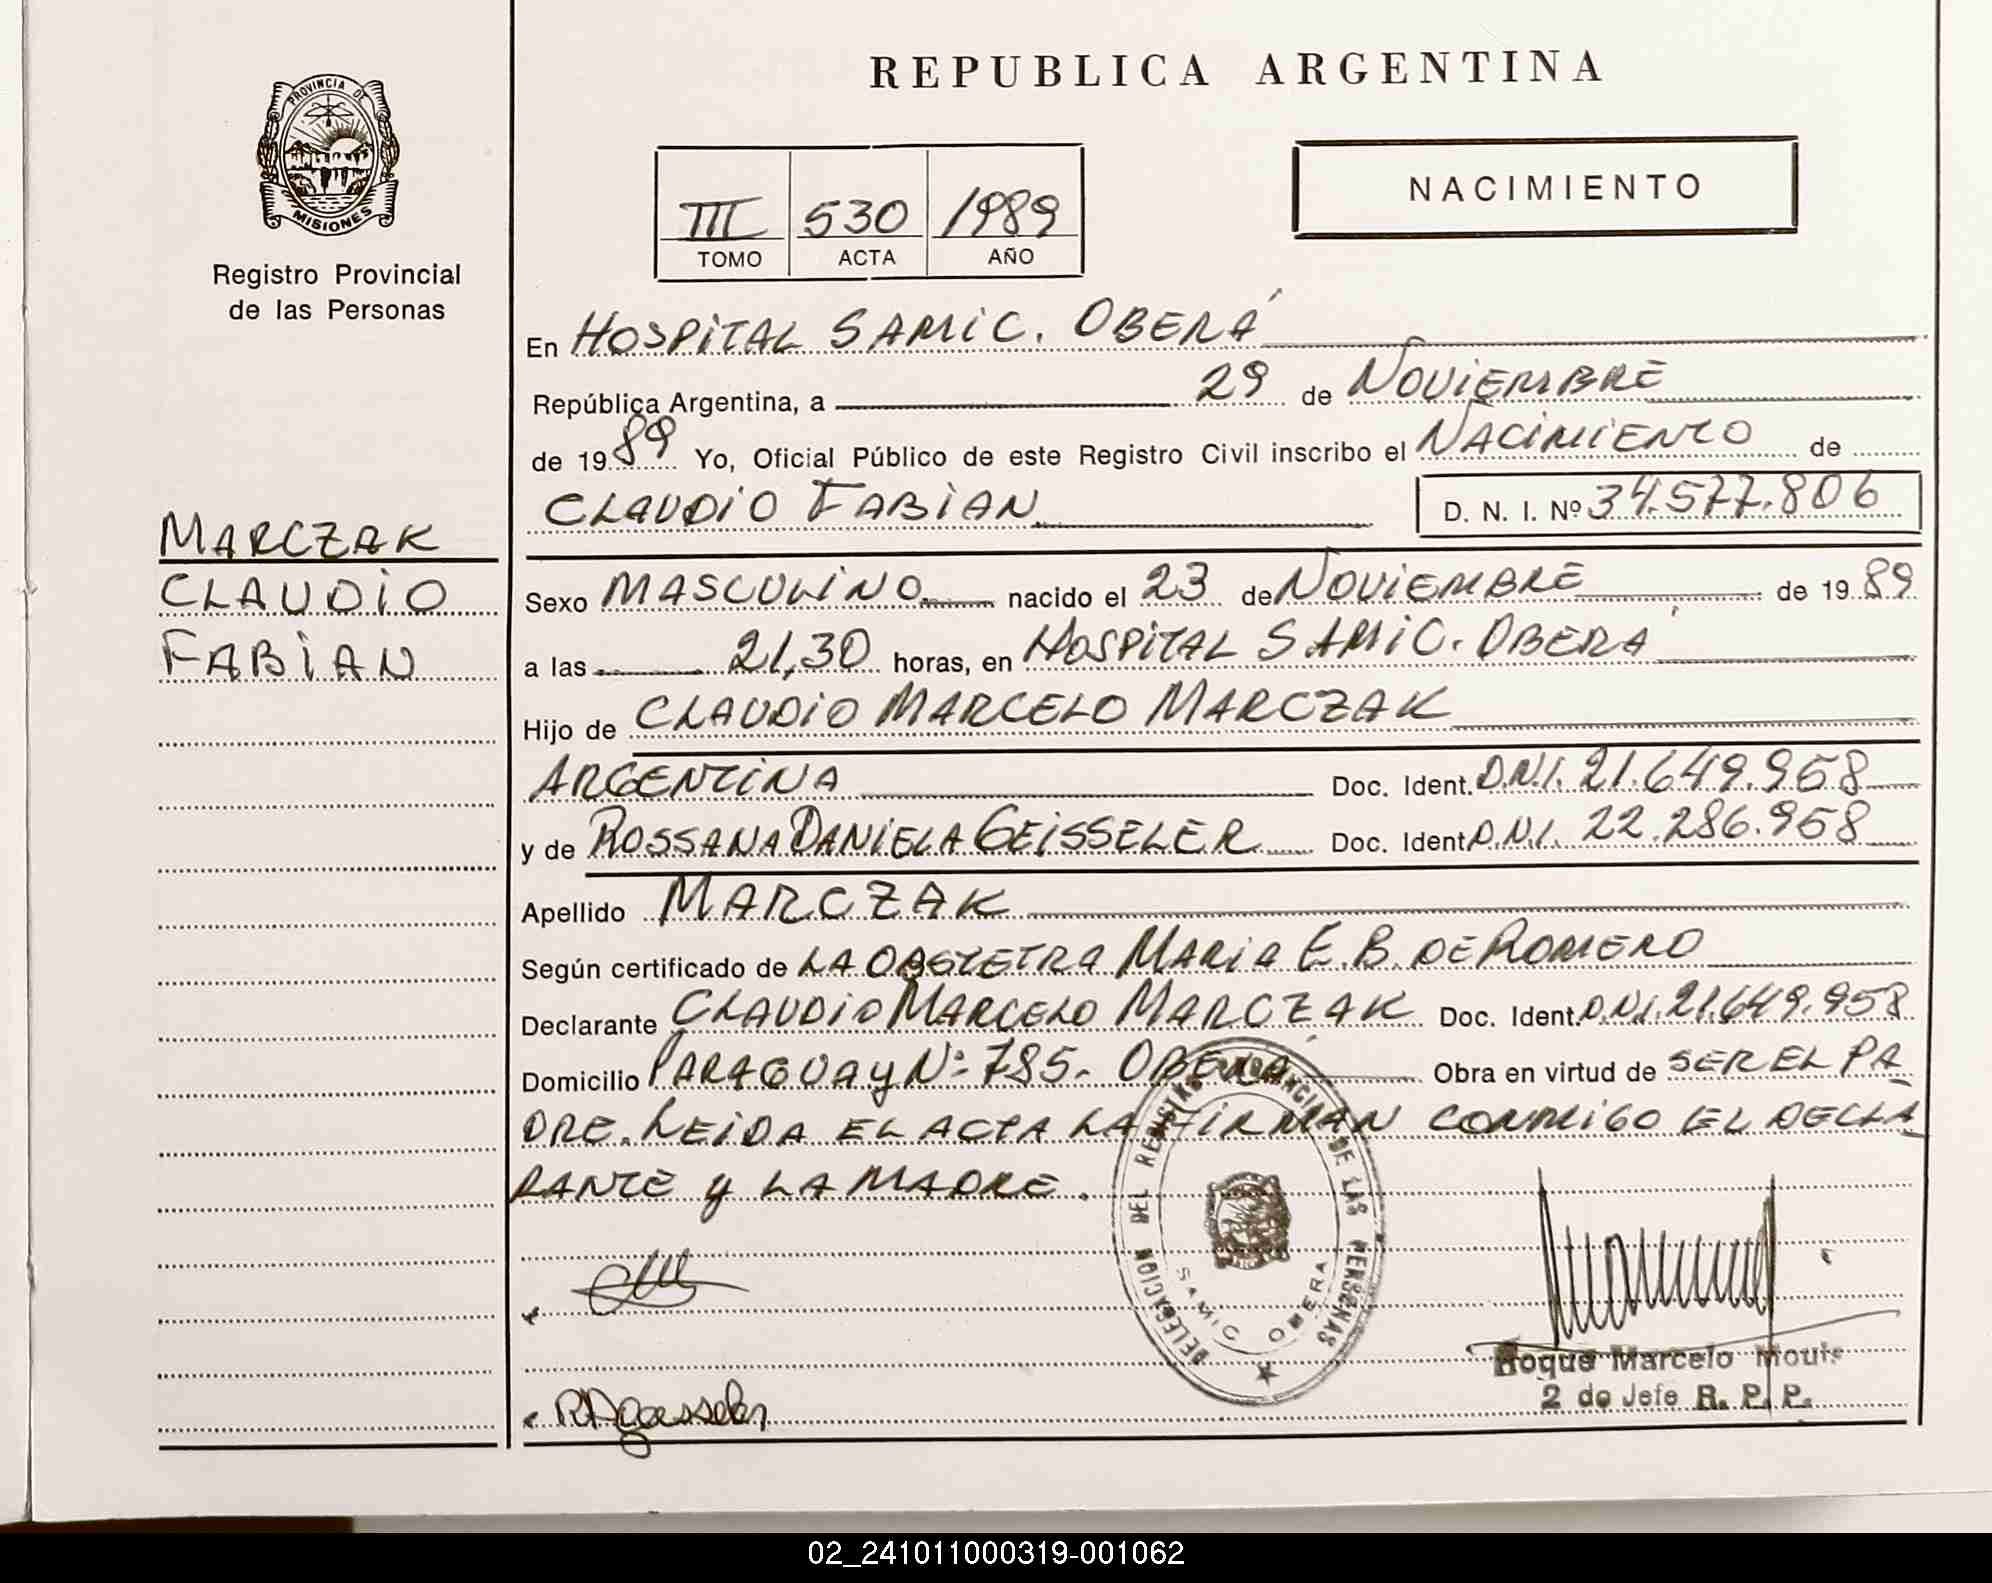 REPUBLICA ARGENTINA
PROVINCIA DE
MISIONES
Registro Provincial
de las Personas
III 530 1989
TOMO ACTA AÑO
NACIMIENTO
En HOSPITAL SAMIC. OBERÁ
República Argentina, a 29 de NOVIEMBRE
de 1989 Yo, Oficial Público de este Registro Civil inscribo el NACIMIENTO de
CLAUDIO FABIAN D. N. I. Nº 34.577.806
MARCZAK
CLAUDIO
FABIAN
Sexo MASCULINO nacido el 23 de NOVIEMBRE de 1989
a las 21,30 horas, en HOSPITAL SAMIC. OBERÁ
Hijo de CLAUDIO MARCELO MARCZAK
ARGENTINA Doc. Ident. D.N.I. 21.649.958
y de ROSSANA DANIELA GEISSELER Doc. Ident. D.N.I. 22.286.958
Apellido MARCZAK
Según certificado de LA OBSTETRA MARIA E. B. DE ROMERO
Declarante CLAUDIO MARCELO MARCZAK Doc. Ident. D.N.I. 21.649.958
Domicilio PARAGUAY Nº 785. OBERÁ Obra en virtud de SER EL PA
DRE. LEIDA EL ACTA LA FIRMAN CONMIGO EL DECLA
RANTE Y LA MADRE.
DELEGACION DEL REGISTRO PROVINCIAL DE LAS PERSONAS
SAMIC OBERA
Roque Marcelo
2 do Jefe R. P. P.
02_241011000319-001062